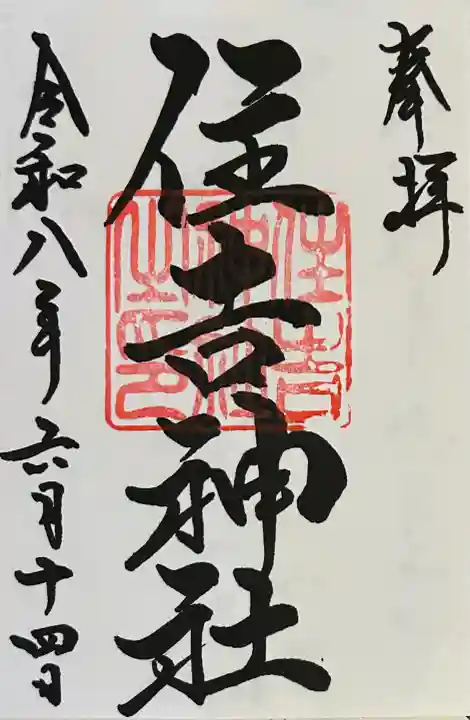 奉拝
住吉神社
住吉神社之印
令和八年六月十四日